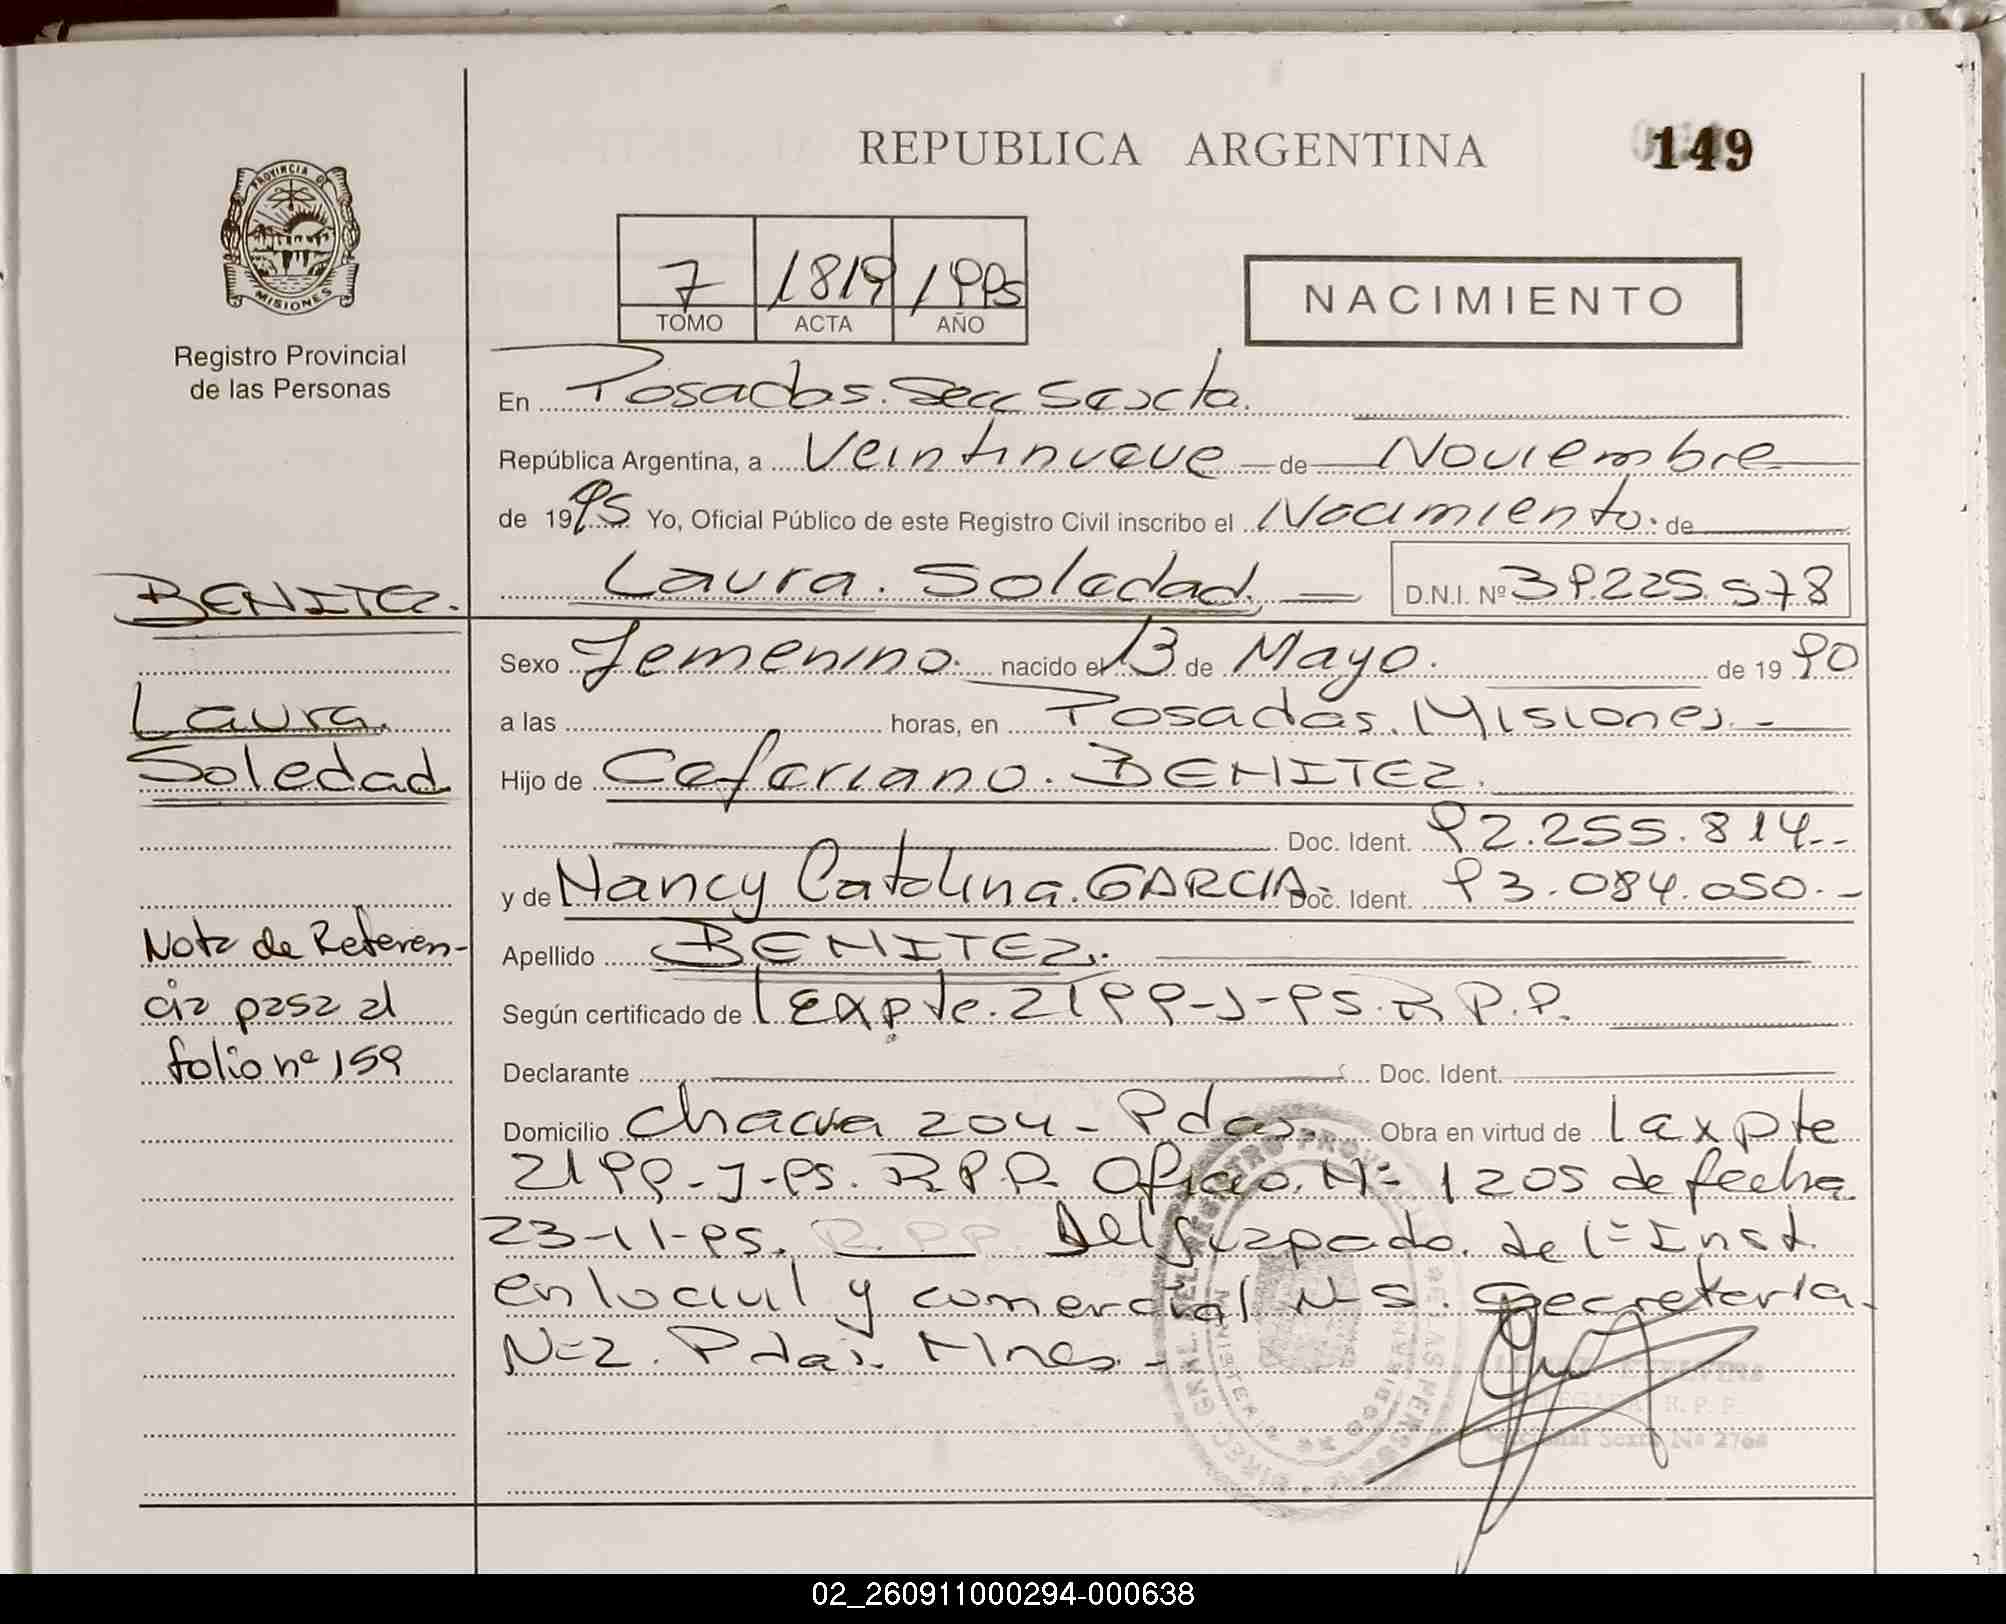 REPUBLICA ARGENTINA
149
PROVINCIA DE
MISIONES
Registro Provincial
de las Personas
7 1819 1995
TOMO ACTA AÑO
NACIMIENTO
En Posadas. Secc Sexta.
República Argentina, a Veintinueve de Noviembre
de 1995 Yo, Oficial Público de este Registro Civil inscribo el Nacimiento. de
Laura. Soledad. D.N.I. Nº 39.225.578
BENITEZ.
Sexo Femenino. nacido el 13 de Mayo. de 1990
Laura.
Soledad
a las horas, en Posadas. Misiones.-
Hijo de Ceferiano. BENITEZ.
Doc. Ident. 92.255.814.--
y de Nancy Catalina. GARCIA. Doc. Ident. 93.084.050.-
Apellido BENITEZ.
Según certificado de Expte. 2199-J-95. R.P.P.
Declarante Doc. Ident.
Nota de Referen-
cia pasa al
folio nº 159
Domicilio Chacra 204 - Pdas. Obra en virtud de Expte
2199-J-95. R.P.P. Oficio. Nº 1205 de fecha
23-11-95. R.PP. Del Juzgado. de 1ª Inst.
en lo civil y comercial Nº 5. Secretaria.
Nº2. Pdas. Mnes.-
R. P. P.
02_260911000294-000638